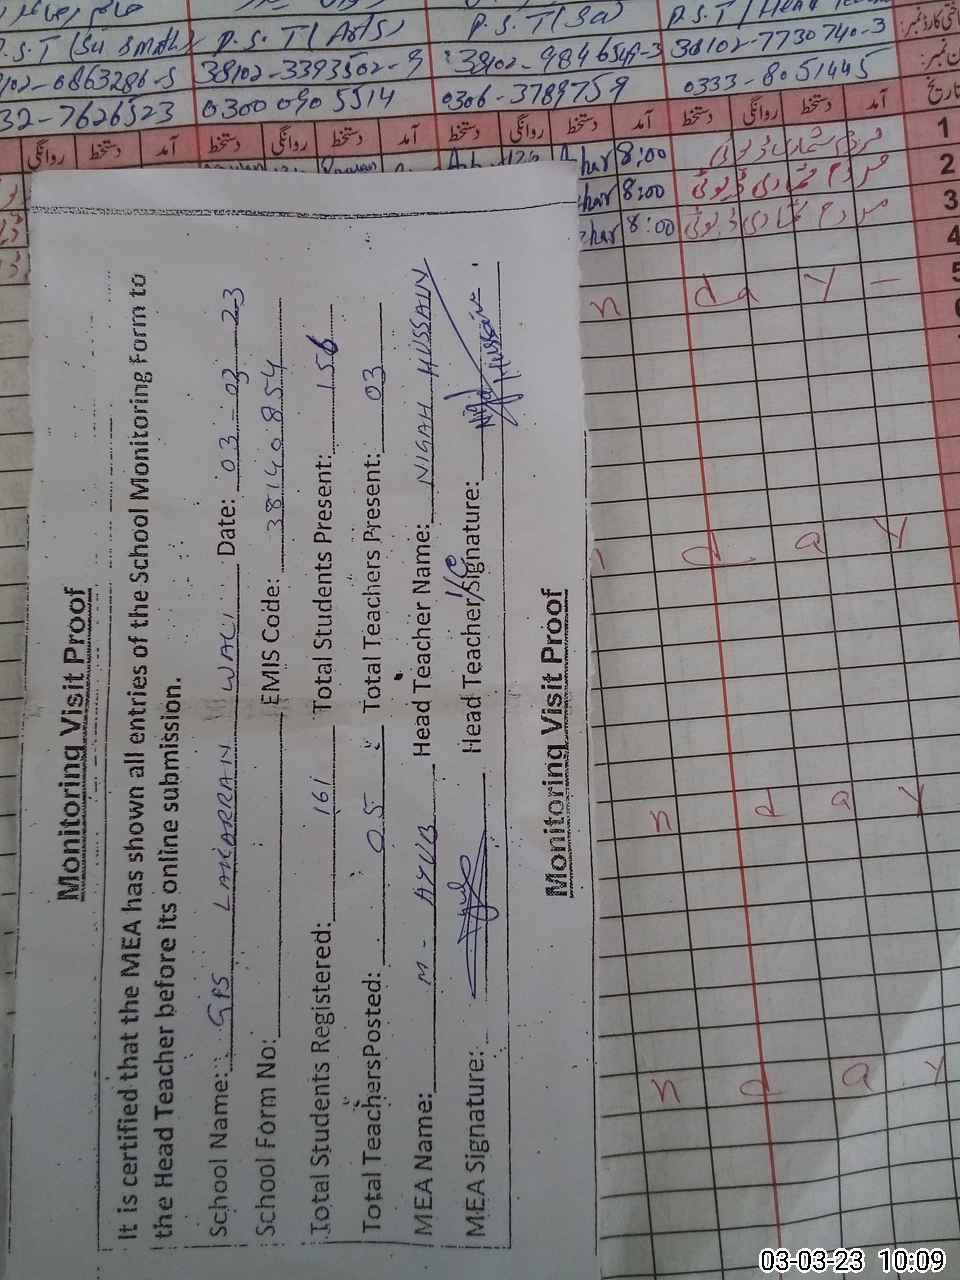 P.S.T (Sci 8math) P.S.T (Arts) P.S.T (Sci) P.S.T / Head
38102-3393502-9 38102-9846549-3 38102-7730740-3
32-7626523 0300 0905514 0306-3789759 0333-8051445
روانگی دستخط آمد دستخط روانگی دستخط آمد دستخط روانگی دستخط آمد تاریخ
8:00 1
8:00 2
8:00 3
4
n d a y — 5
d a y
n d a y
n d a y
Monitoring Visit Proof
It is certified that the MEA has shown all entries of the School Monitoring Form to
the Head Teacher before its online submission.
School Name: GPS LANGARRAN WALI Date: 03-03 23
School Form No: EMIS Code: 38140854
Total Students Registered: 161 Total Students Present: 156
Total Teachers Posted: 05 Total Teachers Present: 03
MEA Name: M- AYUB Head Teacher Name: NIGAH HUSSAIN
MEA Signature: Head Teacher/I/C Signature: Hussain
Monitoring Visit Proof
03-03-23 10:09